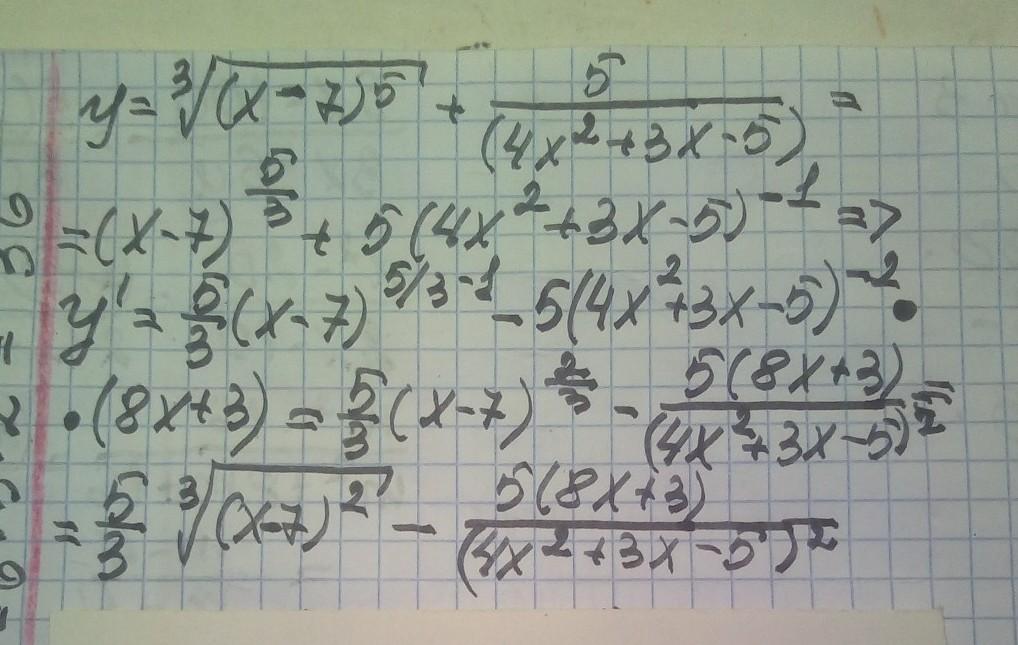 y = ∛((x-7)^5) + 5/(4x²+3x-5) =
= (x-7)^(5/3) + 5(4x²+3x-5)^(-1) =>
y' = 5/3 (x-7)^(5/3-1) - 5(4x²+3x-5)^(-2) •
• (8x+3) = 5/3 (x-7)^(2/3) - 5(8x+3)/(4x²+3x-5)² =
= 5/3 ∛((x-7)²) - 5(8x+3)/(4x²+3x-5)²